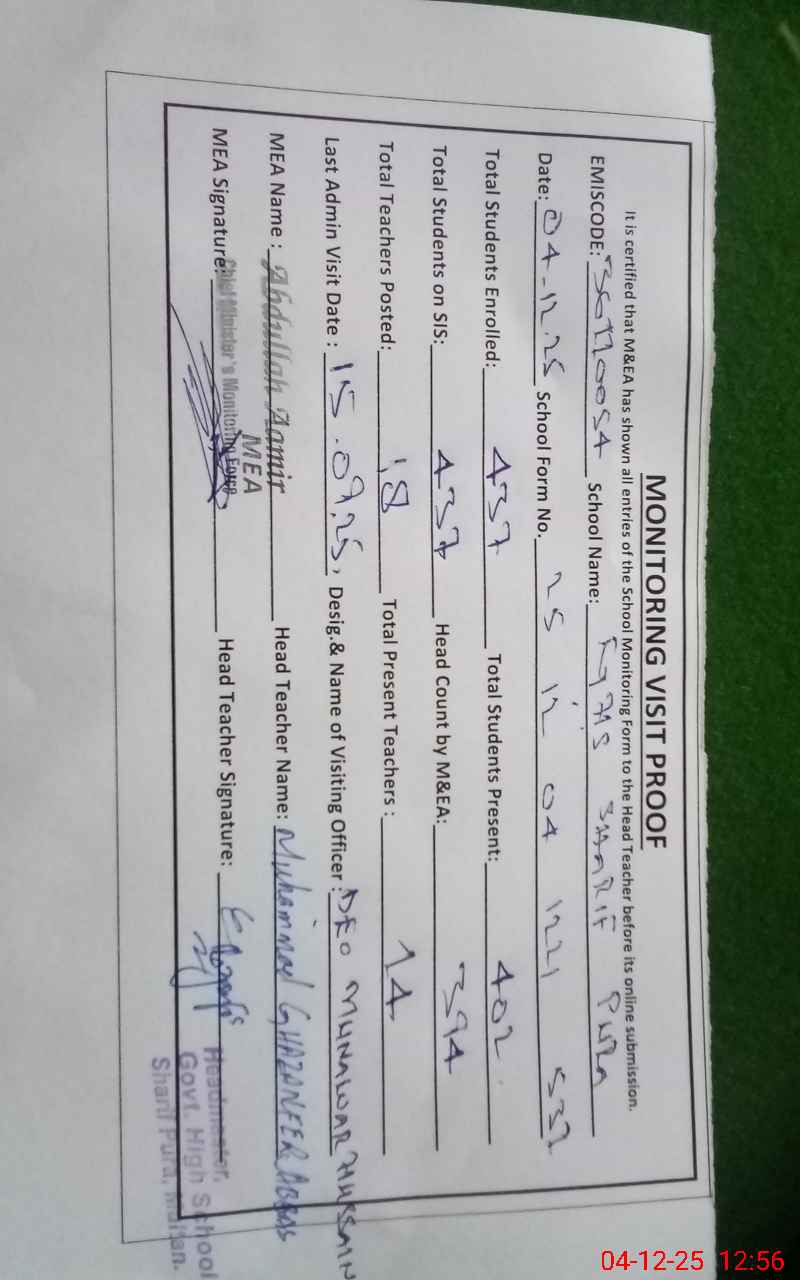 MONITORING VISIT PROOF
It is certified that M&EA has shown all entries of the School Monitoring Form to the Head Teacher before its online submission.
EMISCODE: 36110054 School Name: SHARIF PURA
Date: 04-12.25 School Form No. 25 12 04 1221 537
Total Students Enrolled: 437 Total Students Present: 402
Total Students on SIS: 437 Head Count by M&EA: 394
Total Teachers Posted: 18 Total Present Teachers : 14
Last Admin Visit Date : 15.09.25, Desig.& Name of Visiting Officer : DEO MUNAWAR HUSSAIN
MEA Name : Abdullah Aamir Head Teacher Name: Muhammad GHAZANFER ABBAS
MEA
MEA Signature: Chief Minister's Monitoring Force Head Teacher Signature:
Headmaster.
Govt. High School
Sharif Pura, Multan.
04-12-25 12:56